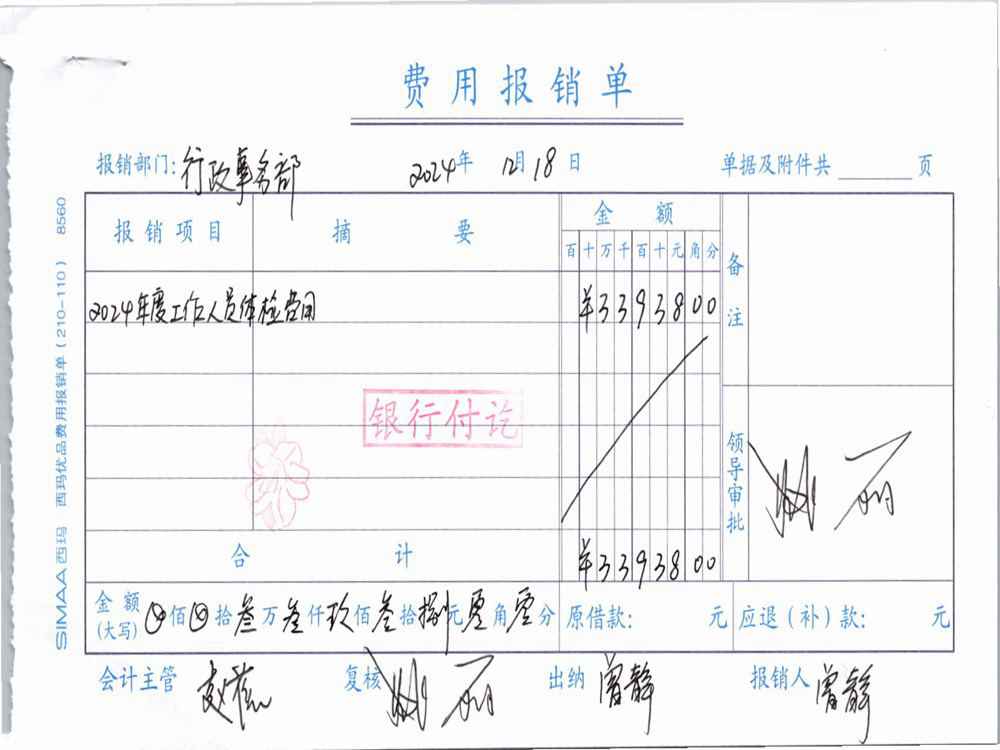 费用报销单
报销部门: 行政事务部 2024年 12月 18日 单据及附件共 页
报销项目 摘要 金额 备注
百十万千百十元角分
2024年度工作人员体检费用 ¥3393800
银行付讫
领导审批
合计 ¥3393800
金额(大写) 佰 拾叁万叁仟玖佰叁拾捌元零角零分 原借款: 元 应退(补)款: 元
会计主管 复核 出纳 曾静 报销人 曾静
SIMAA西玛 西玛优品费用报销单(210-110) 8560